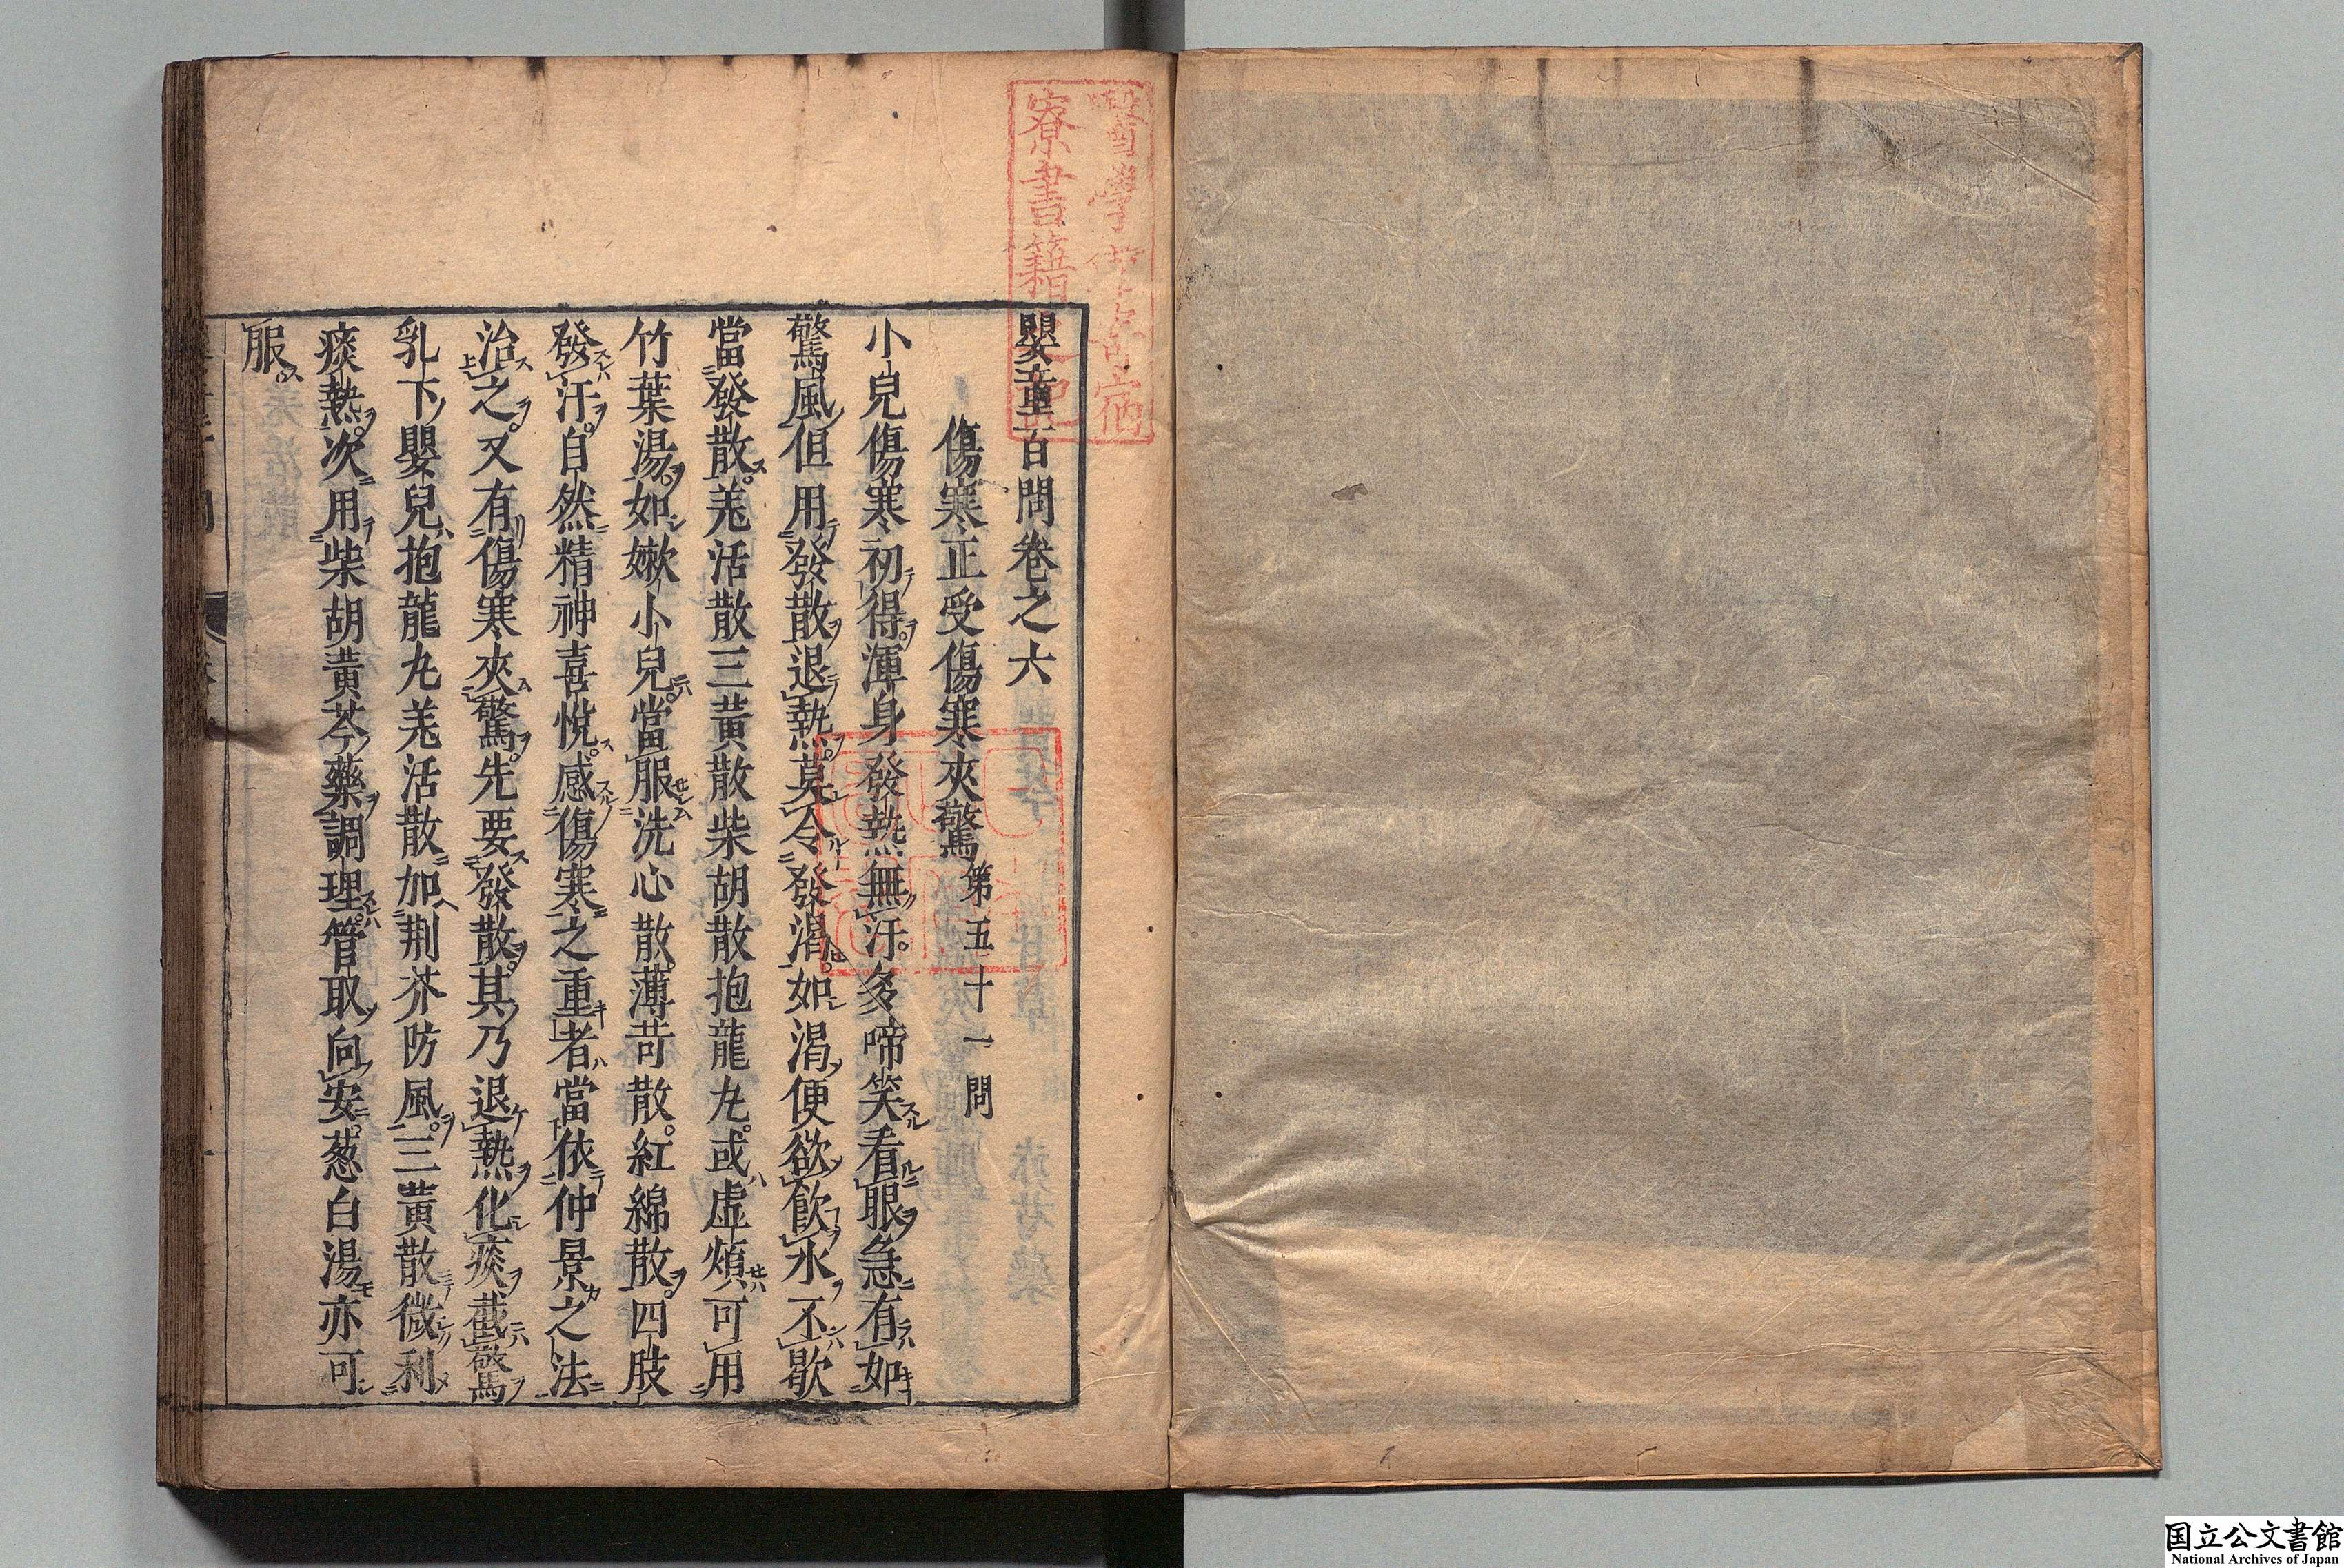 嬰童百問卷之六
傷寒正受傷寒夾驚第五十一問
小兒傷寒初得渾身發熱無汗多啼笑看眼急有如
驚風但用發散退熱莫令發渴如渴便欲飲水不歇
當發散羗活散三黃散柴胡散抱龍丸或虛煩可用
竹葉湯如嫩小兒當服洗心散薄苛散紅綿散四肢
發汗自然精神喜悅感傷寒之重者當依仲景之法
治之又有傷寒夾驚先要發散其乃退熱化痰截驚
乳下嬰兒抱龍丸羗活散加荆芥防風三黃散微利
痰熱次用柴胡黃芩藥調理管取向安葱白湯亦可
服
國立公文書館
National Archives of Japan